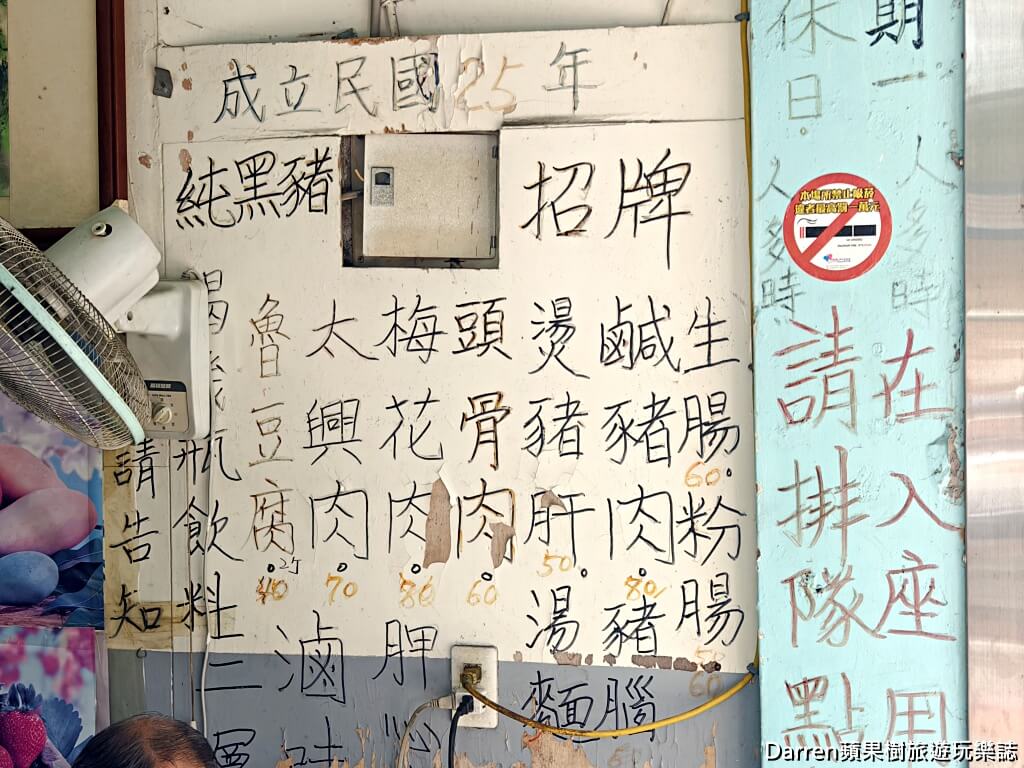 成立民國25年
純黑豬
招牌
生腸 60
粉腸 60
鹹豬肉 80
豬腦
燙豬肝 50
湯麵
頭骨肉 60
梅花肉 80
胛心
太興肉 70
滷味
魯豆腐 40
瓶飲料二
請告知
期一
休日
人多時
人多時
請排隊點
在入座用
本場所禁止吸菸
違者最高罰一萬元
Darren蘋果樹旅遊玩樂誌